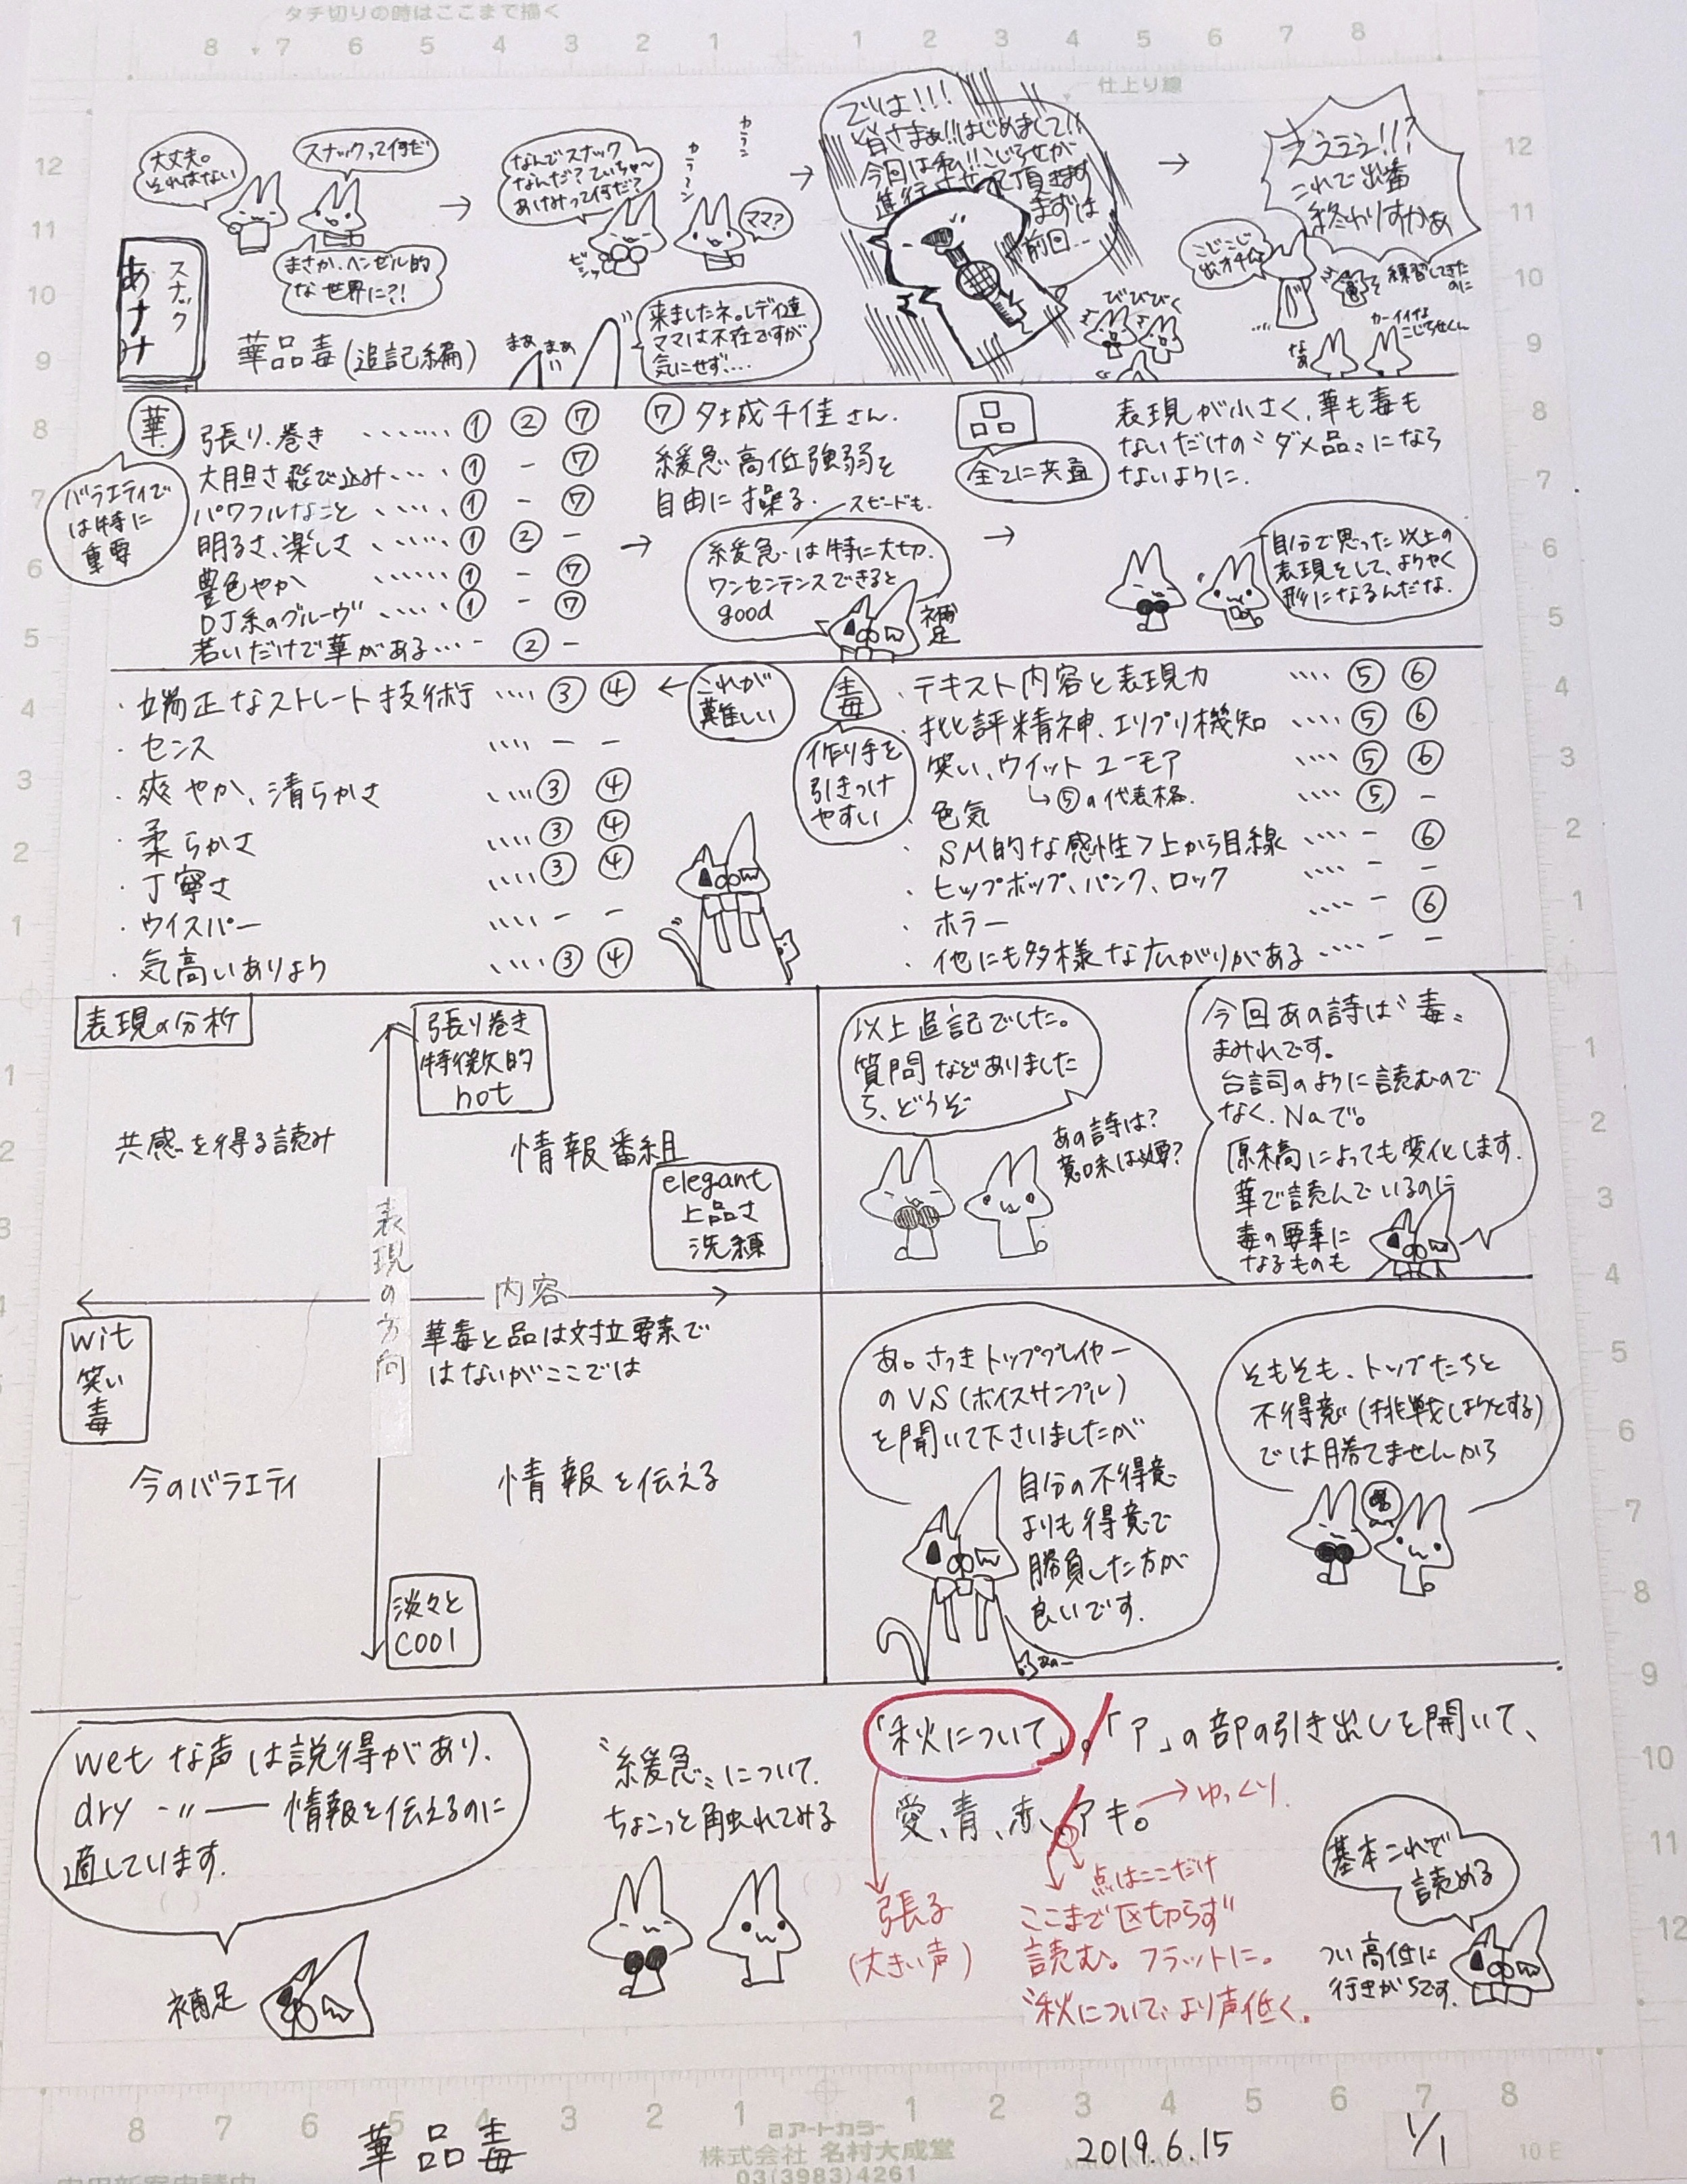 タチ切りの時はここまで描く
仕上り線
大丈夫。
それはない
スナックって何だ
まさか、ヘンゼル的
な世界に?!
スナック
あけみ
華品毒(追記編)
なんでスナック
なんだ?てぃちゃ〜
あけみって何だ?
ビシッ
カラーン
カラーン
ママ?
まぁ
まぁ
来ましたネ。レディ達
ママは不在ですが
気にせず、…
では!!!
皆さまぁ!!はじめまして!!
今回は私!!こじらせが
進行させて頂きます
まずは
前回…
びびびく
ええェェ!!?
これで出番
終わりすかぁ
こじこじ
出オチ
練習してきた
のに
カーイイな
こじらせくん
華
バラエティで
は特に
重要
張り、巻き ……… ① ② ⑦
大胆さ飛び込み…… ① - ⑦
パワフルなこと …… ① - ⑦
明るさ、楽しさ …… ① ② -
豊色やか …… ① - ⑦
DJ系のグルーヴ …… ① - ⑦
若いだけで華がある… - ② -
⑦ 夕城千佳さん.
緩急高低強弱を
自由に操る.
スピードも.
緩急は特に大切.
ワンセンテンスできると
good
補足
品
全てに共通
表現が小さく、華も毒も
ないだけの〝ダメ品〟になら
ないように.
自分で思った以上の
表現をして、ようやく
形になるんだな.
・端正なストレート技術 …. ③ ④
これが
難しい
・センス …. - -
・爽やか、清らかさ …. ③ ④
・柔らかさ …. ③ ④
・丁寧さ …. ③ ④
・ウイスパー …. - -
・気高いありよう …. ③ ④
毒
作り手を
引きつけ
やすい
・テキスト内容と表現力 …. ⑤ ⑥
・批評精神、エリプリ機知 …. ⑤ ⑥
・笑い、ウイット ユーモア …. ⑤ ⑥
↳⑤の代表格.
・色気 …. ⑤ -
・SM的な感性>上から目線 …. - ⑥
・ヒップホップ、パンク、ロック …. - -
・ホラー …. - ⑥
・他にも多様な広がりがある …. - -
表現の分析
張り巻き
特徴的
hot
共感を得る読み
情報番組
elegant
上品さ
洗練
表現の方向
内容
wit
笑い
毒
華毒と品は対立要素で
はないがここでは
今のバラエティ
情報を伝える
淡々と
cool
以上追記でした。
質問などありました
ら、どうぞ
あの詩は?
意味は必要?
今回あの詩は〝毒〟
まみれです。
台詞のように読むので
なく、Naで。
原稿によっても変化します.
華で読んでいるのに
毒の要素に
なるものも
あ。さっきトッププレイヤー
のVS(ボイスサンプル)
を聞いて下さいましたが
自分の不得意
よりも得意で
勝負した方が
良いです.
そもそも、トップたちと
不得意(挑戦しようとする)
では勝てませんから
wetな声は説得があり.
dry -〃― 情報を伝えるのに
適しています.
補足
〝緩急〟について.
ちょこっと触れてみる
「秋について」。「ア」の部の引き出しを開いて、
愛、青、赤、アキ。
→ゆっくり.
張る
(大きい声)
点はここだけ
ここまで区切らず
読む。フラットに。
〝秋について〟より声低く.
基本これで
読める
つい高低に
行きがちです.
華品毒
アートカラー
株式会社 名村大成堂
03(3983)4261
2019.6.15
1/1